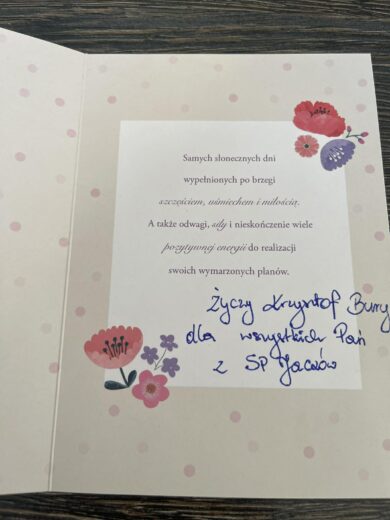 Samych słonecznych dni
wypełnionych po brzegi
szczęściem, uśmiechem i miłością.
A także odwagi, siły i nieskończenie wiele
pozytywnej energii do realizacji
swoich wymarzonych planów.
Życzy Krzysztof Bury
dla wszystkich Pań
z SP Jaczów